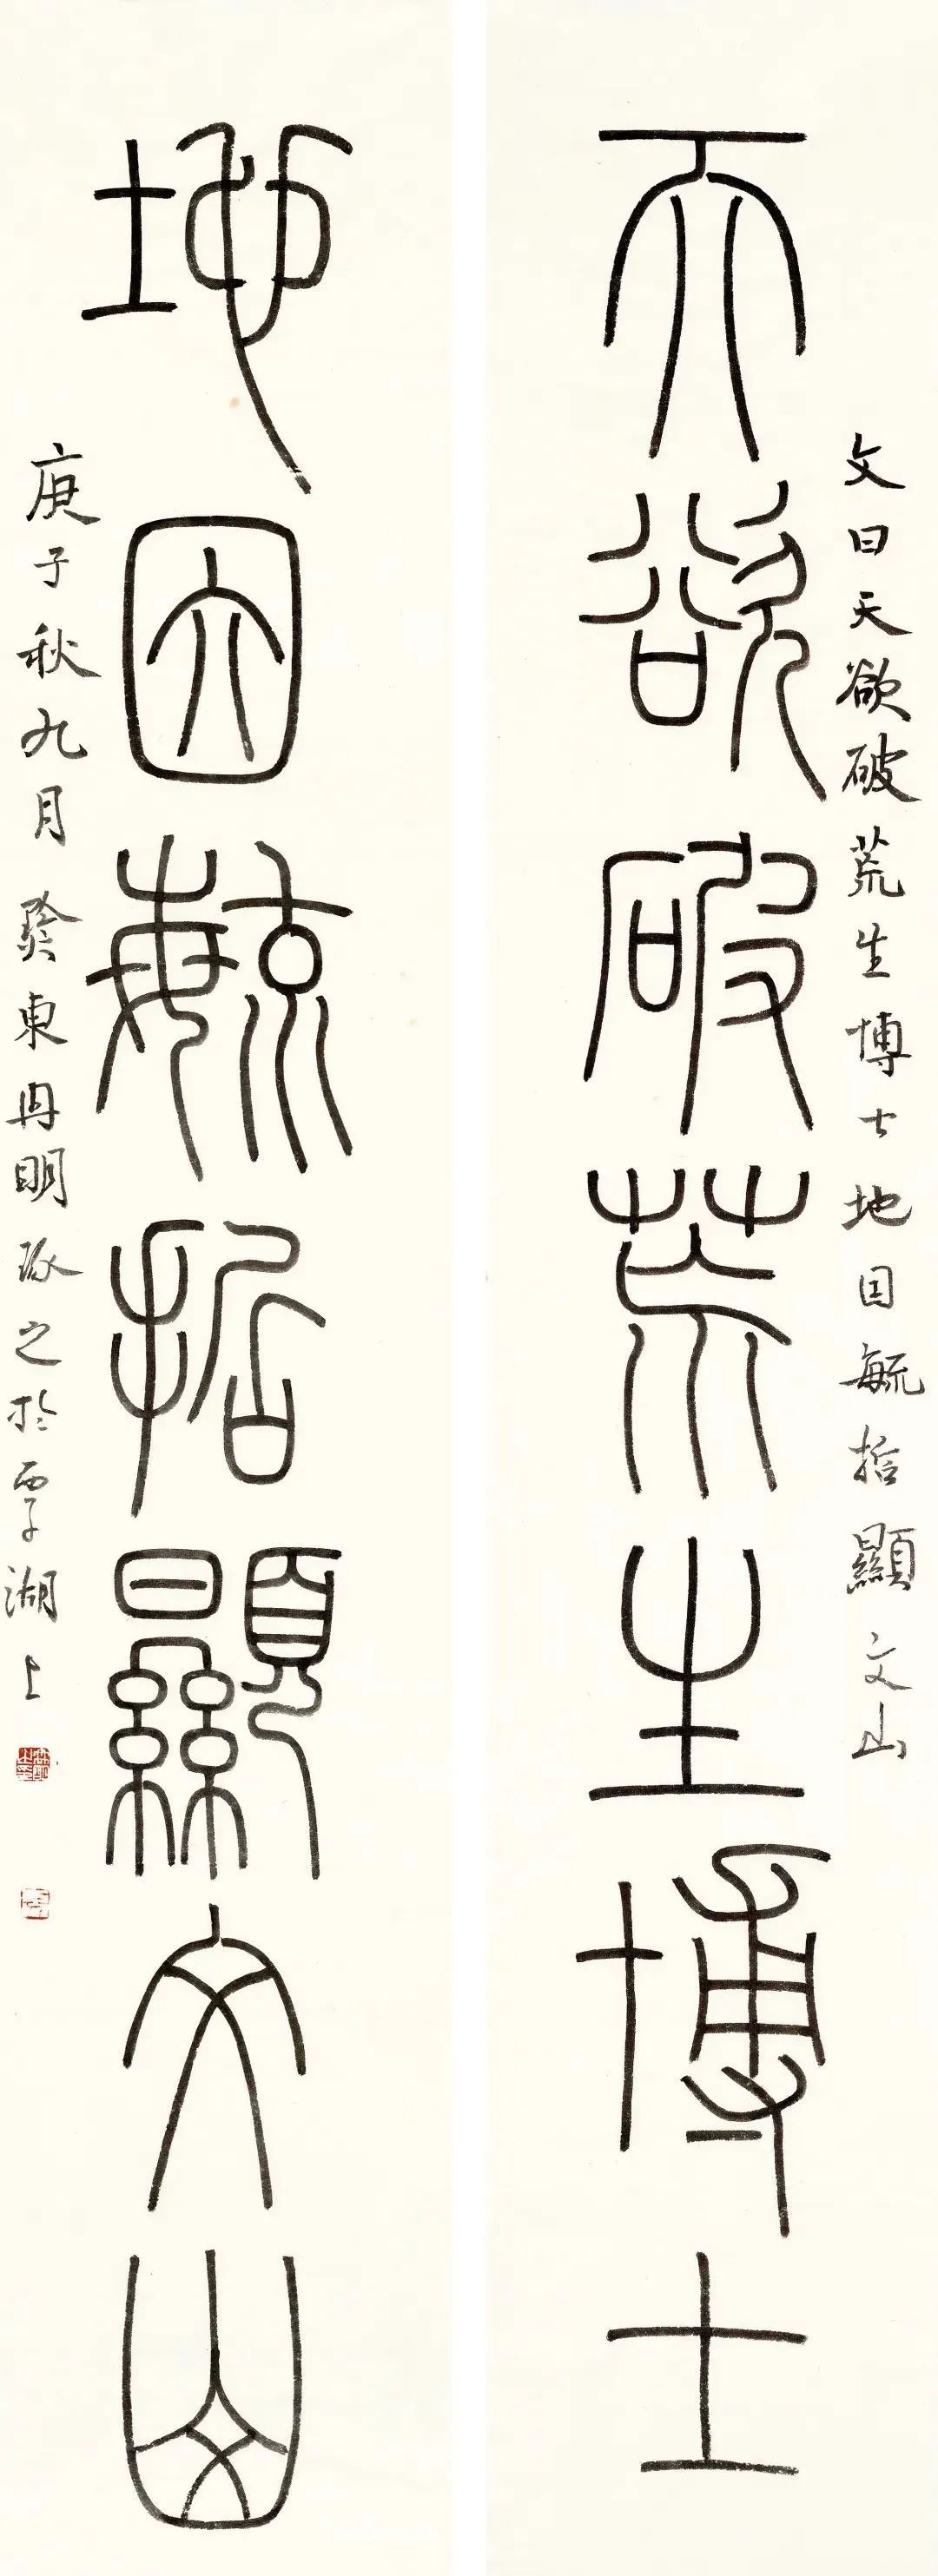 文曰天欲破荒生博士地因毓哲顯文山
天欲破荒生博士
地因毓哲顯文山
庚子秋九月發東冉明琢之於覃湖上